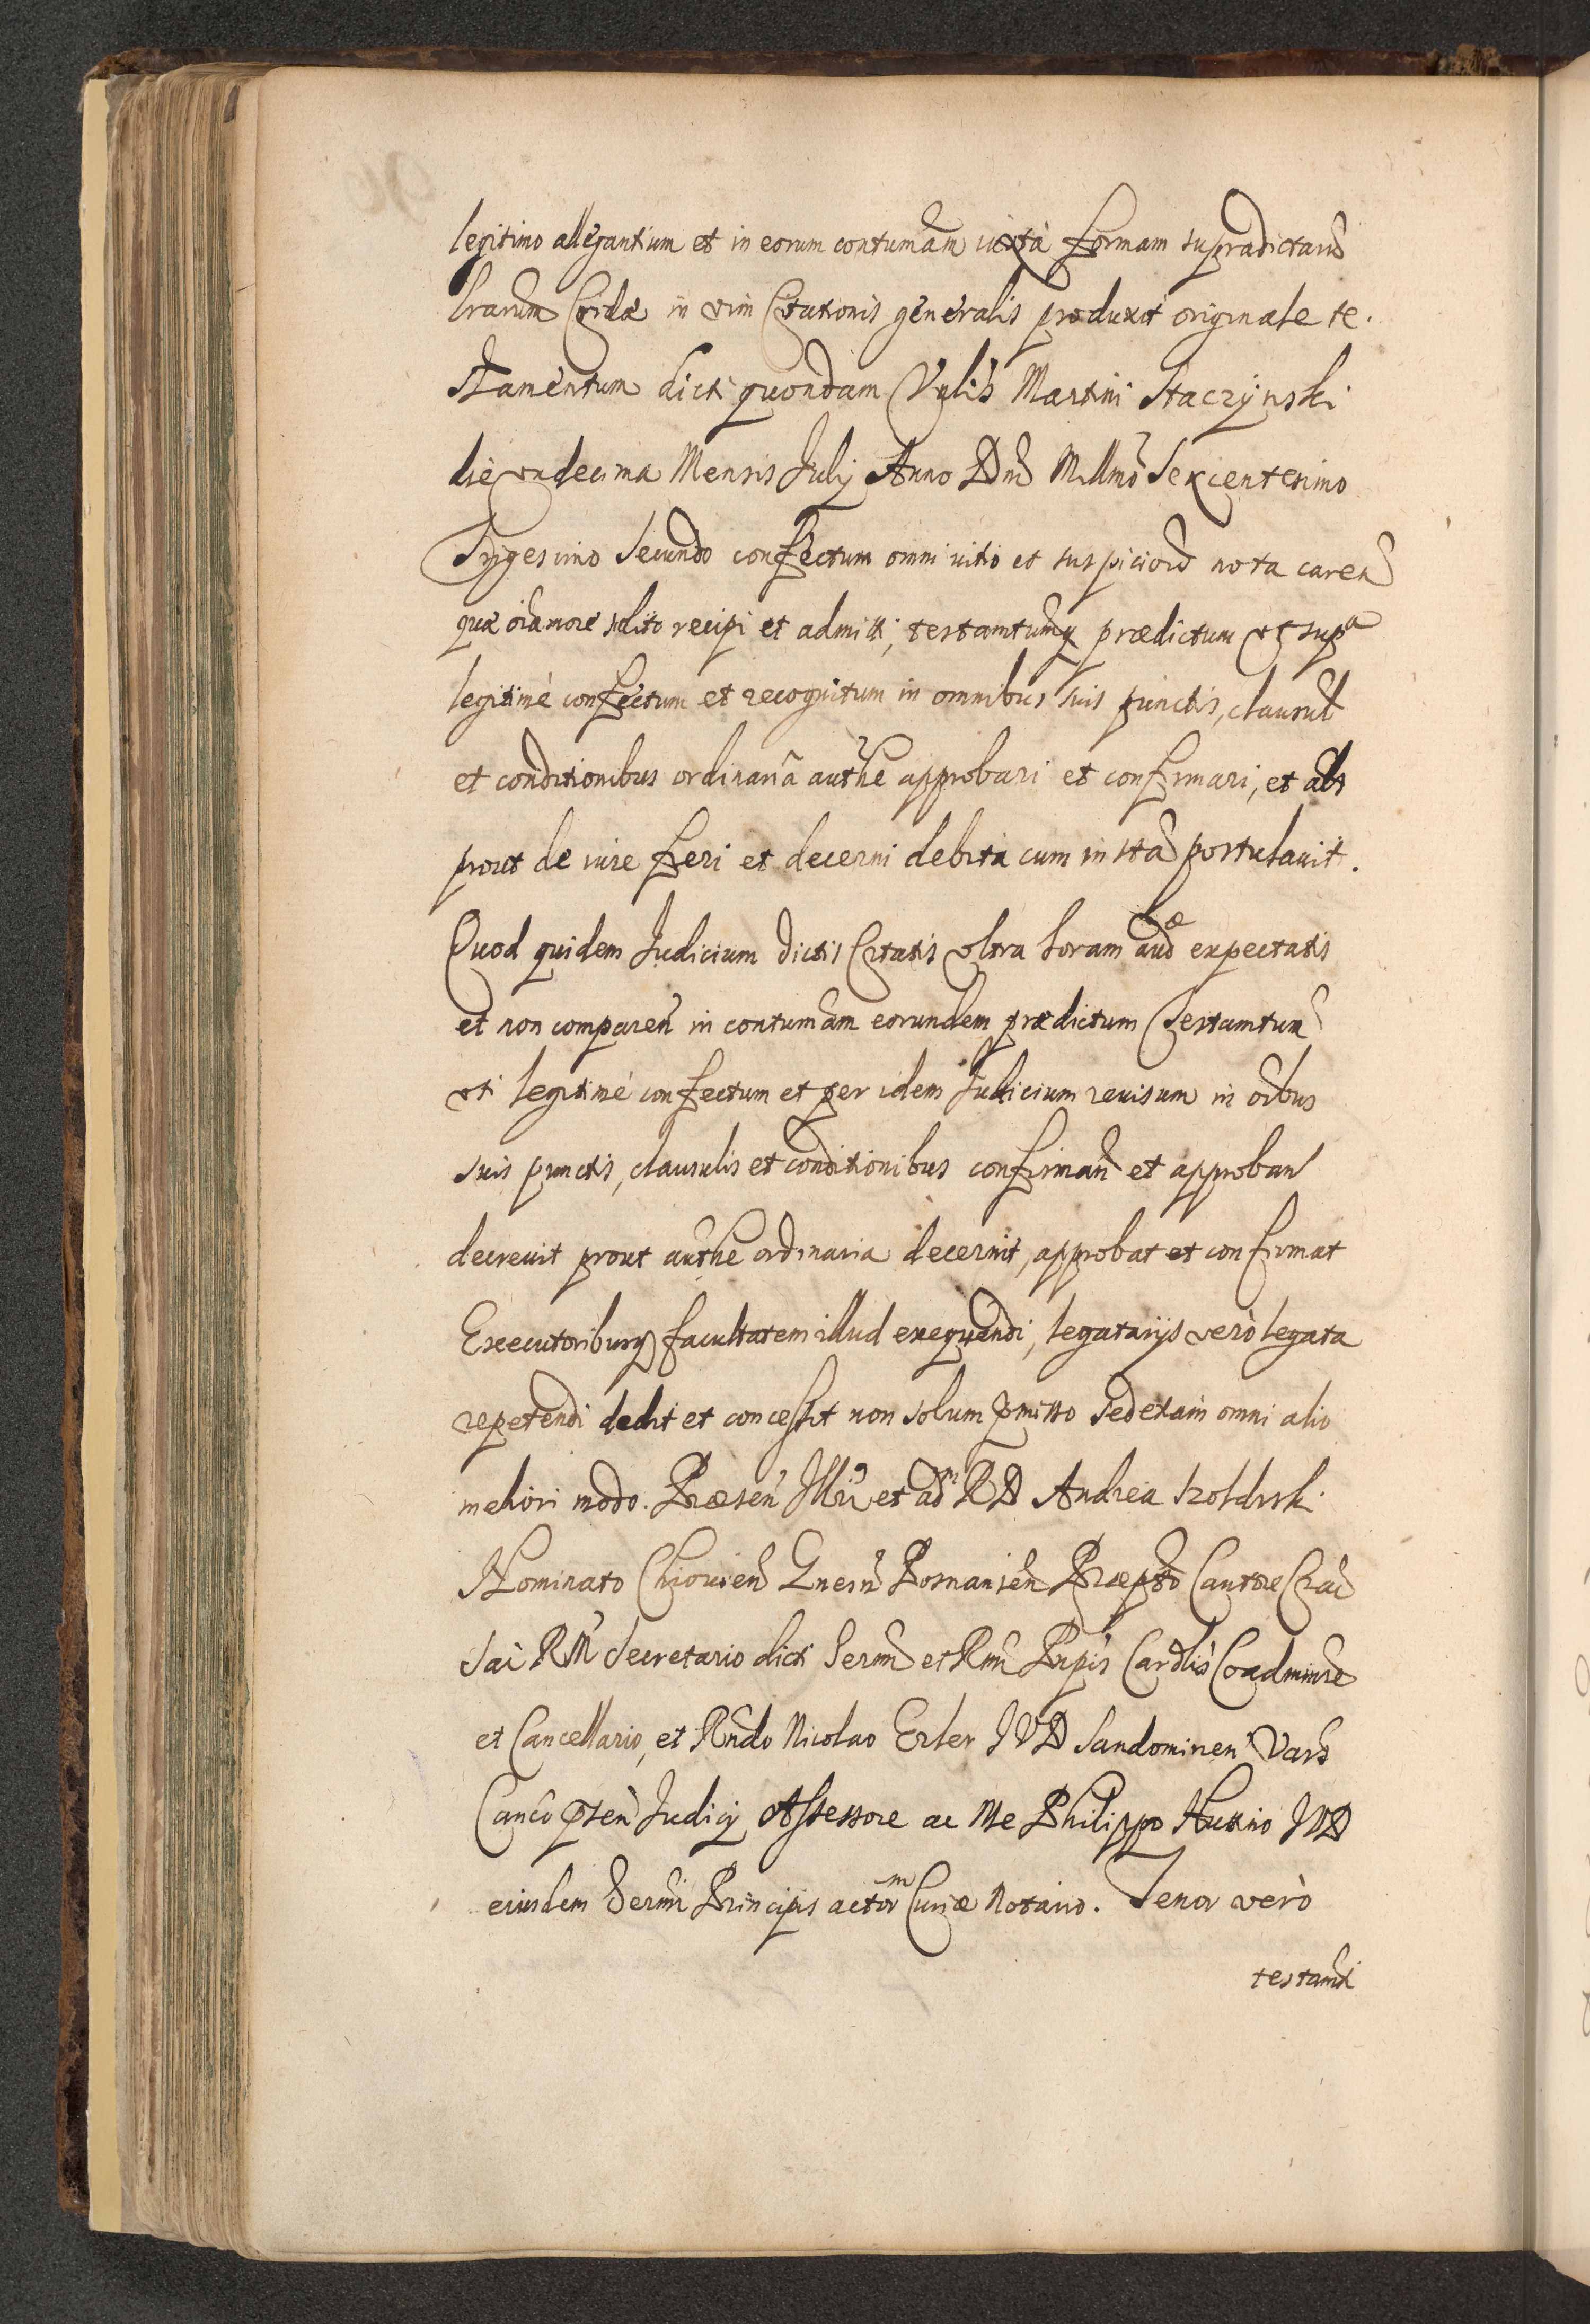 legitimo allegantium et in eorum contumãm iuxtà formam supradictarũ
lrarum Cridæ in vim Citationis generalis produxit originale te.
stamentum dicti quondam Nglis Martini Staczÿnski
die vndecima Mensis Julij Anno Dnĩ Millmõ Sexcentesimo
Trigesimo Secundo confectum omni vitio et suspicioñ nota careñ
quæ oĩa more solito recipi et admitti, testamtumq̃ prædictum vt supᵃ
legitimè confectum et recognitum in omnibus suis punctis, clausul̃
et conditionibus ordinariã authẽ approbari et confirmari, et alt
prout de iure fieri et decerni debita cum instã postulauit.
Quod quidem Judicium dictis Citatis vltra horam audæ expectatis
et non compareñ in contumãm eorundem prædictum Testamtum
vti legitimè confectum et per idem Judicium reuisum in oĩbus
suis punctis, clausulis et conditionibus confirmañ et approbañ
decreuit prout authẽ ordinaria decernit, approbat et confirmat
Executoribusq̃ facultatem illud exequendi, legatarijs verò legata
repetendi dedit et concessit non solum pmisso sed etiam omni alio
meliori modo. Præseñ Illri et adᵐ RD Andrea Szoldrski
Nominato Chiouieñ Gnesñ Posnanieñ Præpto Cantore Crac̃
Sac̃ RM Secretario dicti Sermi et Rmi Prpis Cardlis Coadminre
et Cancellario, et Rñdo Nicolao Erler JVD Sandomirieñ Vars̃
Canco pñseñ Judicij Assessore ac Me Philippo Huttino JVD
eiusdem Sermi Principis actorᵐ Curiæ Notario. Tenor verò
testamti